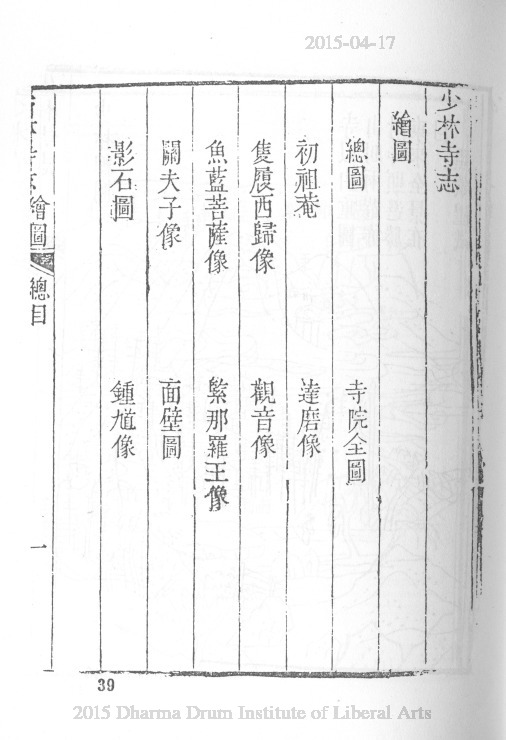 2015-04-17
少林寺志
繪圖
總圖 寺院全圖
初祖菴 達磨像
隻履西歸像 觀音像
魚藍菩薩像 緊那羅王像
關夫子像 面壁圖
影石圖 鍾馗像
繪圖 總目 一
39
2015 Dharma Drum Institute of Liberal Arts